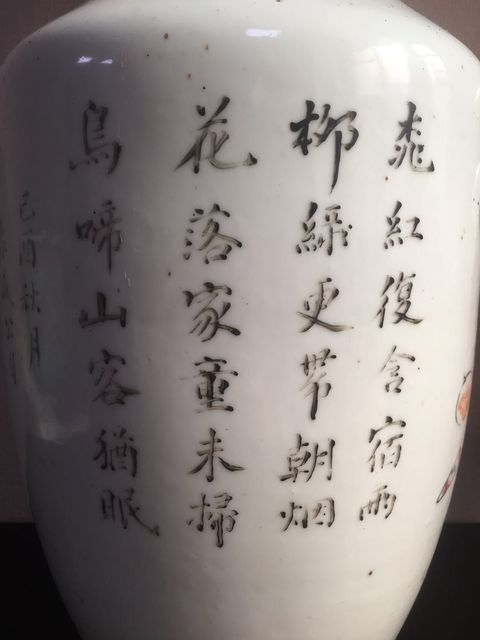 桃紅復含宿雨
柳綠更帶朝烟
花落家童未掃
鳥啼山客猶眠
己酉秋月